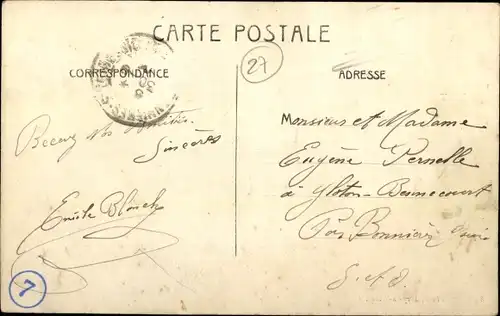 CARTE POSTALE
27
CORRESPONDANCE
ADRESSE
Recevez nos amitiés
Sincères
Emile
Monsieur et Madame
Eugène Pernelle
à Gloton-Bennecourt
Par Bonnières
S. et O.
7